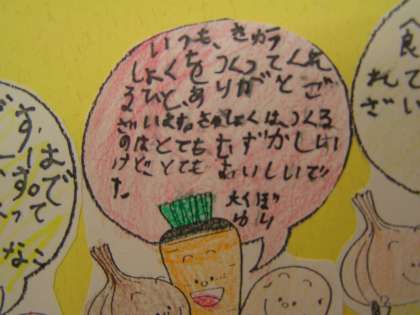 いつも、きゅう
しょくをつくってくれ
るひと、ありがとご
ざいます。きゅしょくはつくる
のはとてもむずかしい
けど、とてもおいしいで
た
大くぼ
ゆり
食
てい
れ
ざ